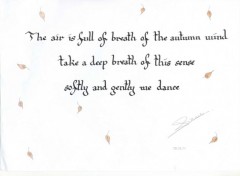 The air is full of breath of the autumn wind
take a deep breath of this sense
softly and gently we dance